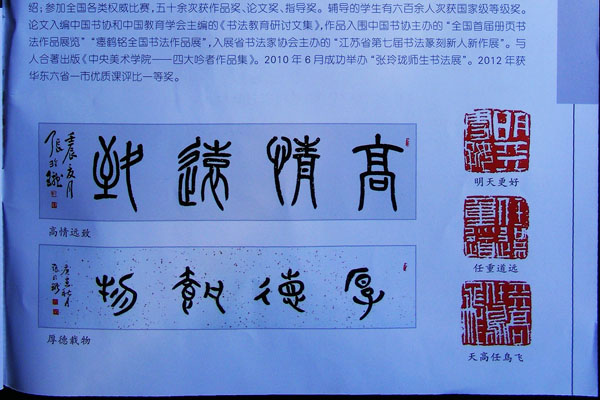 绍；参加全国各类权威比赛，五十余次获作品奖、论文奖、指导奖。辅导的学生有六百余人次获国家级等级奖。
论文入编中国书协和中国教育学会主编的《书法教育研讨文集》，作品入围中国书协主办的“全国首届册页书
法作品展览”“瘗鹤铭全国书法作品展”，入展省书法家协会主办的“江苏省第七届书法篆刻新人新作展”。与
人合著出版《中央美术学院——四大吟者作品集》。2010年6月成功举办“张玲珑师生书法展”。2012年获
华东六省一市优质课评比一等奖。
高情遠致
壬辰夏月
高情远致
厚德載物
厚德载物
明天更好
任重道远
天高任鸟飞